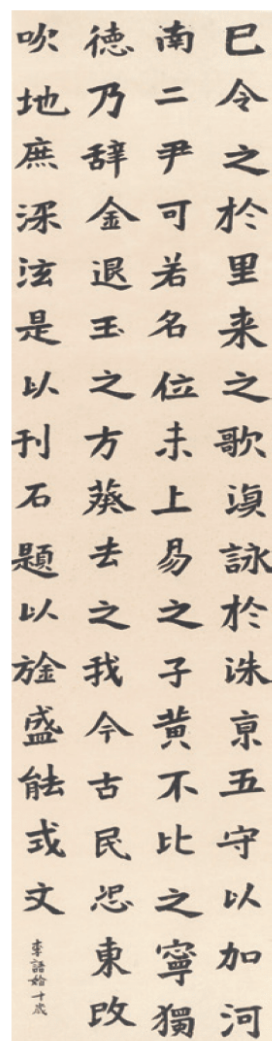 巳令之於里来之歌湏詠於洙京五守以加河
南二尹可若名位未上易之子黄不比之寧獨
德乃辞金退玉之方葵去之我今古民恐東改
吹地庶深泫是以刊石題以旍盛能或文
李語始十歲